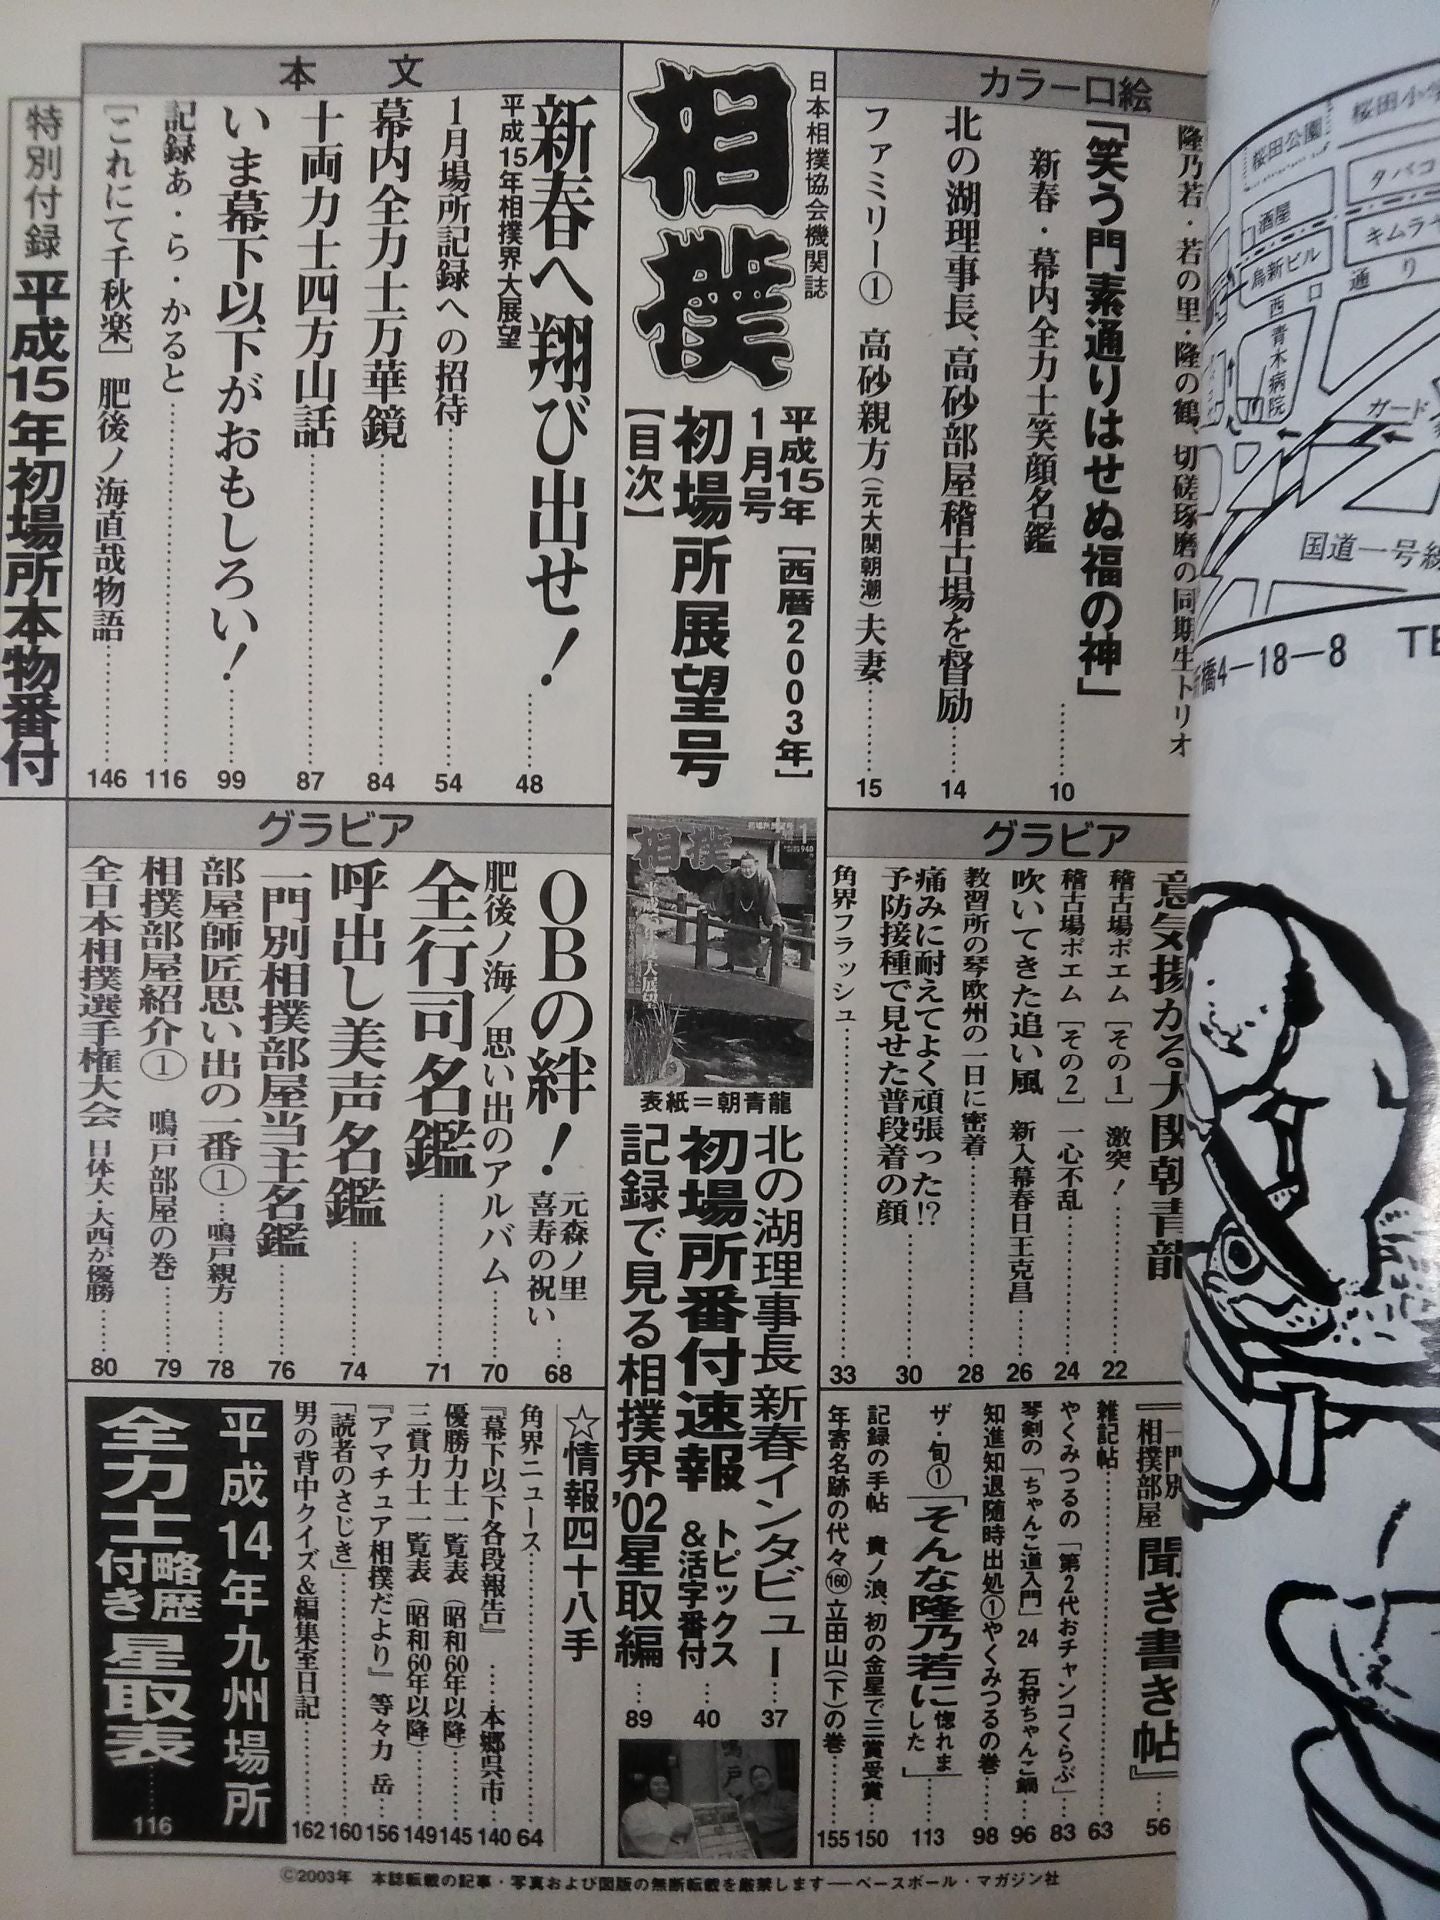 カラー口絵
隆乃若・若の里・隆の鶴、切磋琢磨の同期生トリオ
「笑う門素通りはせぬ福の神」
新春・幕内全力士笑顔名鑑……10
北の湖理事長、高砂部屋稽古場を督励……14
ファミリー① 高砂親方(元大関朝潮)夫妻……15
日本相撲協会機関誌
相撲
平成15年[西暦2003年]
1月号
初場所展望号
[目次]
本文
新春へ翔び出せ!
平成15年相撲界大展望……48
1月場所記録への招待……54
幕内全力士万華鏡……84
十両力士四方山話……87
いま幕下以下がおもしろい!……99
記録あ・ら・かると……116
[これにて千秋楽]肥後ノ海直哉物語……146
特別付録 平成15年初場所本物番付
グラビア
意気揚がる大関朝青龍
稽古場ポエム[その1] 激突!……22
稽古場ポエム[その2] 一心不乱……24
吹いてきた追い風 新入幕春日王克昌……26
教習所の琴欧州の一日に密着……28
痛みに耐えてよく頑張った!?
予防接種で見せた普段着の顔……30
角界フラッシュ……33
表紙=朝青龍
北の湖理事長 新春インタビュー……37
初場所番付速報 トピックス&活字番付……40
記録で見る相撲界'02星取編……89
グラビア
OBの絆! 元森ノ里喜寿の祝い……68
肥後ノ海/思い出のアルバム……70
全行司名鑑……71
呼出し美声名鑑……74
一門別相撲部屋当主名鑑……76
部屋師匠思い出の一番①…鳴戸親方……78
相撲部屋紹介① 鳴戸部屋の巻……79
全日本相撲選手権大会 日体大・大西が優勝……80
『一門別相撲部屋 聞き書き帖』……56
雑記帖……63
やくみつるの「第2代おチャンコくらぶ」……83
琴剣の「ちゃんこ道入門」24 石狩ちゃんこ鍋……96
知進知退随時出処①やくみつるの巻……98
ザ・旬①「そんな隆乃若に惚れました」……113
記録の手帖 貴ノ浪、初の金星で三賞受賞……150
年寄名跡の代々160立田山(下)の巻……155
☆情報四十八手
角界ニュース……64
『幕下以下各段報告』……本郷呉市……140
優勝力士一覧表(昭和60年以降)……145
三賞力士一覧表(昭和60年以降)……149
『アマチュア相撲だより』等々力 岳……156
「読者のさじき」……160
男の背中クイズ&編集室日記……162
平成14年九州場所
全力士略歴付き星取表……116
©2003年 本誌転載の記事・写真および図版の無断転載を厳禁します──ベースボール・マガジン社
桜田公園
酒屋
鳥新ビル
タバコ
西口通り
青木病院
ガード
国道一号線
橋4-18-8